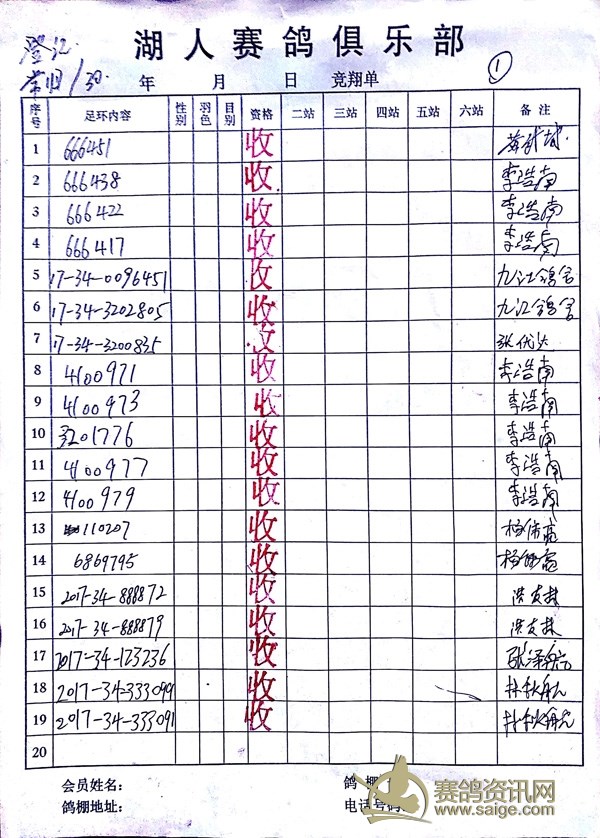 湖人赛鸽俱乐部
登江
年 月 日 竞翔单 ①
序号 足环内容 性别 羽色 目别 资格 二站 三站 四站 五站 六站 备注
1 666451 收
2 666438 收 李浩南
3 666422 收 李浩南
4 666417 收 李浩南
5 17-34-0096451 收 九江鸽舍
6 17-34-3202805 收 九江鸽舍
7 17-34-3200835 收 张优达
8 4100971 收 李浩南
9 4100973 收 李浩南
10 201776 收 李浩南
11 4100977 收 李浩南
12 4100979 收 李浩南
13 110207 收 杨伟亮
14 6869795 收 杨伟亮
15 2017-34-888872 收 洪友林
16 2017-34-888879 收 洪友林
17 2017-34-123236 收 张泽航
18 2017-34-333099 收 林秋航
19 2017-34-333091 收 林秋航
20
会员姓名: 鸽棚
鸽棚地址: 电话号码:
赛鸽资讯网
www.saige.com